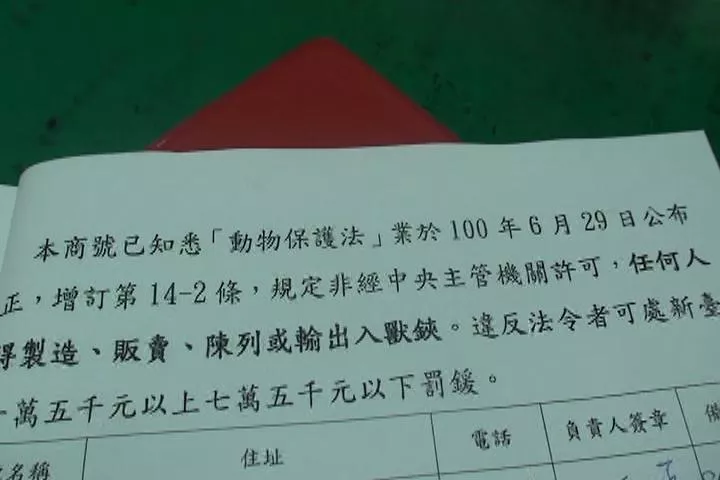 本商號已知悉「動物保護法」業於 100 年 6 月 29 日公布
正，增訂第 14-2 條，規定非經中央主管機關許可，任何人
得製造、販賣、陳列或輸出入獸鋏。違反法令者可處新臺
萬五千元以上七萬五千元以下罰鍰。
名稱 住址 電話 負責人簽章 備